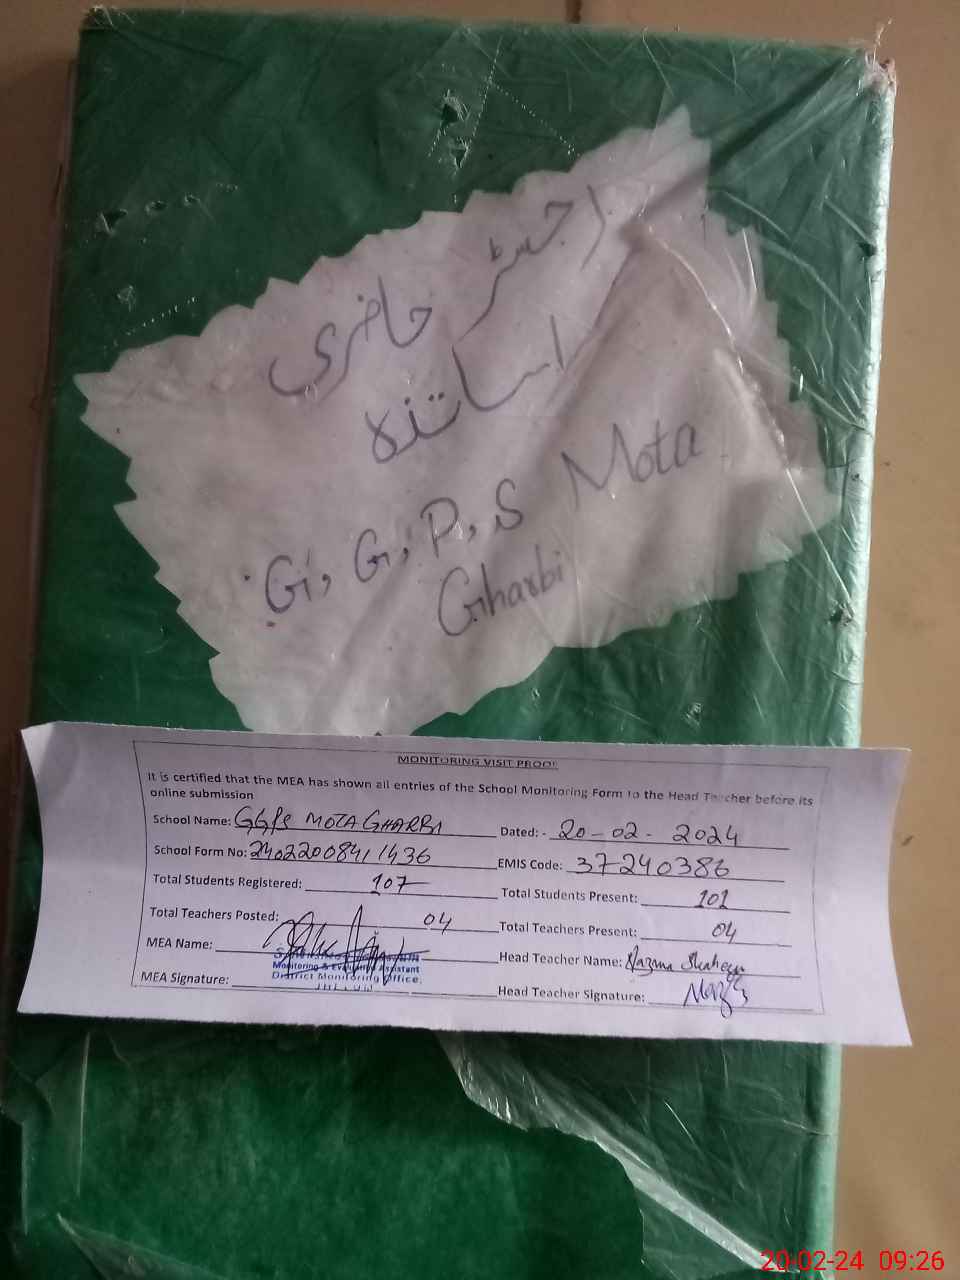 رجسٹر حاضری
اساتذہ
G, G, P, S Mota
Gharbi
MONITORING VISIT PROOF
It is certified that the MEA has shown all entries of the School Monitoring Form to the Head Teacher before its
online submission
School Name: GGPS MOTA GHARBI Dated:- 20-02-2024
School Form No: 24022008411436 EMIS Code: 37240386
Total Students Registered: 107 Total Students Present: 101
Total Teachers Posted: 04 Total Teachers Present: 04
MEA Name: Head Teacher Name: Nazama Shaheen
Monitoring & Evaluation Assistant
District Monitoring Office,
MEA Signature: Head Teacher Signature:
20-02-24 09:26